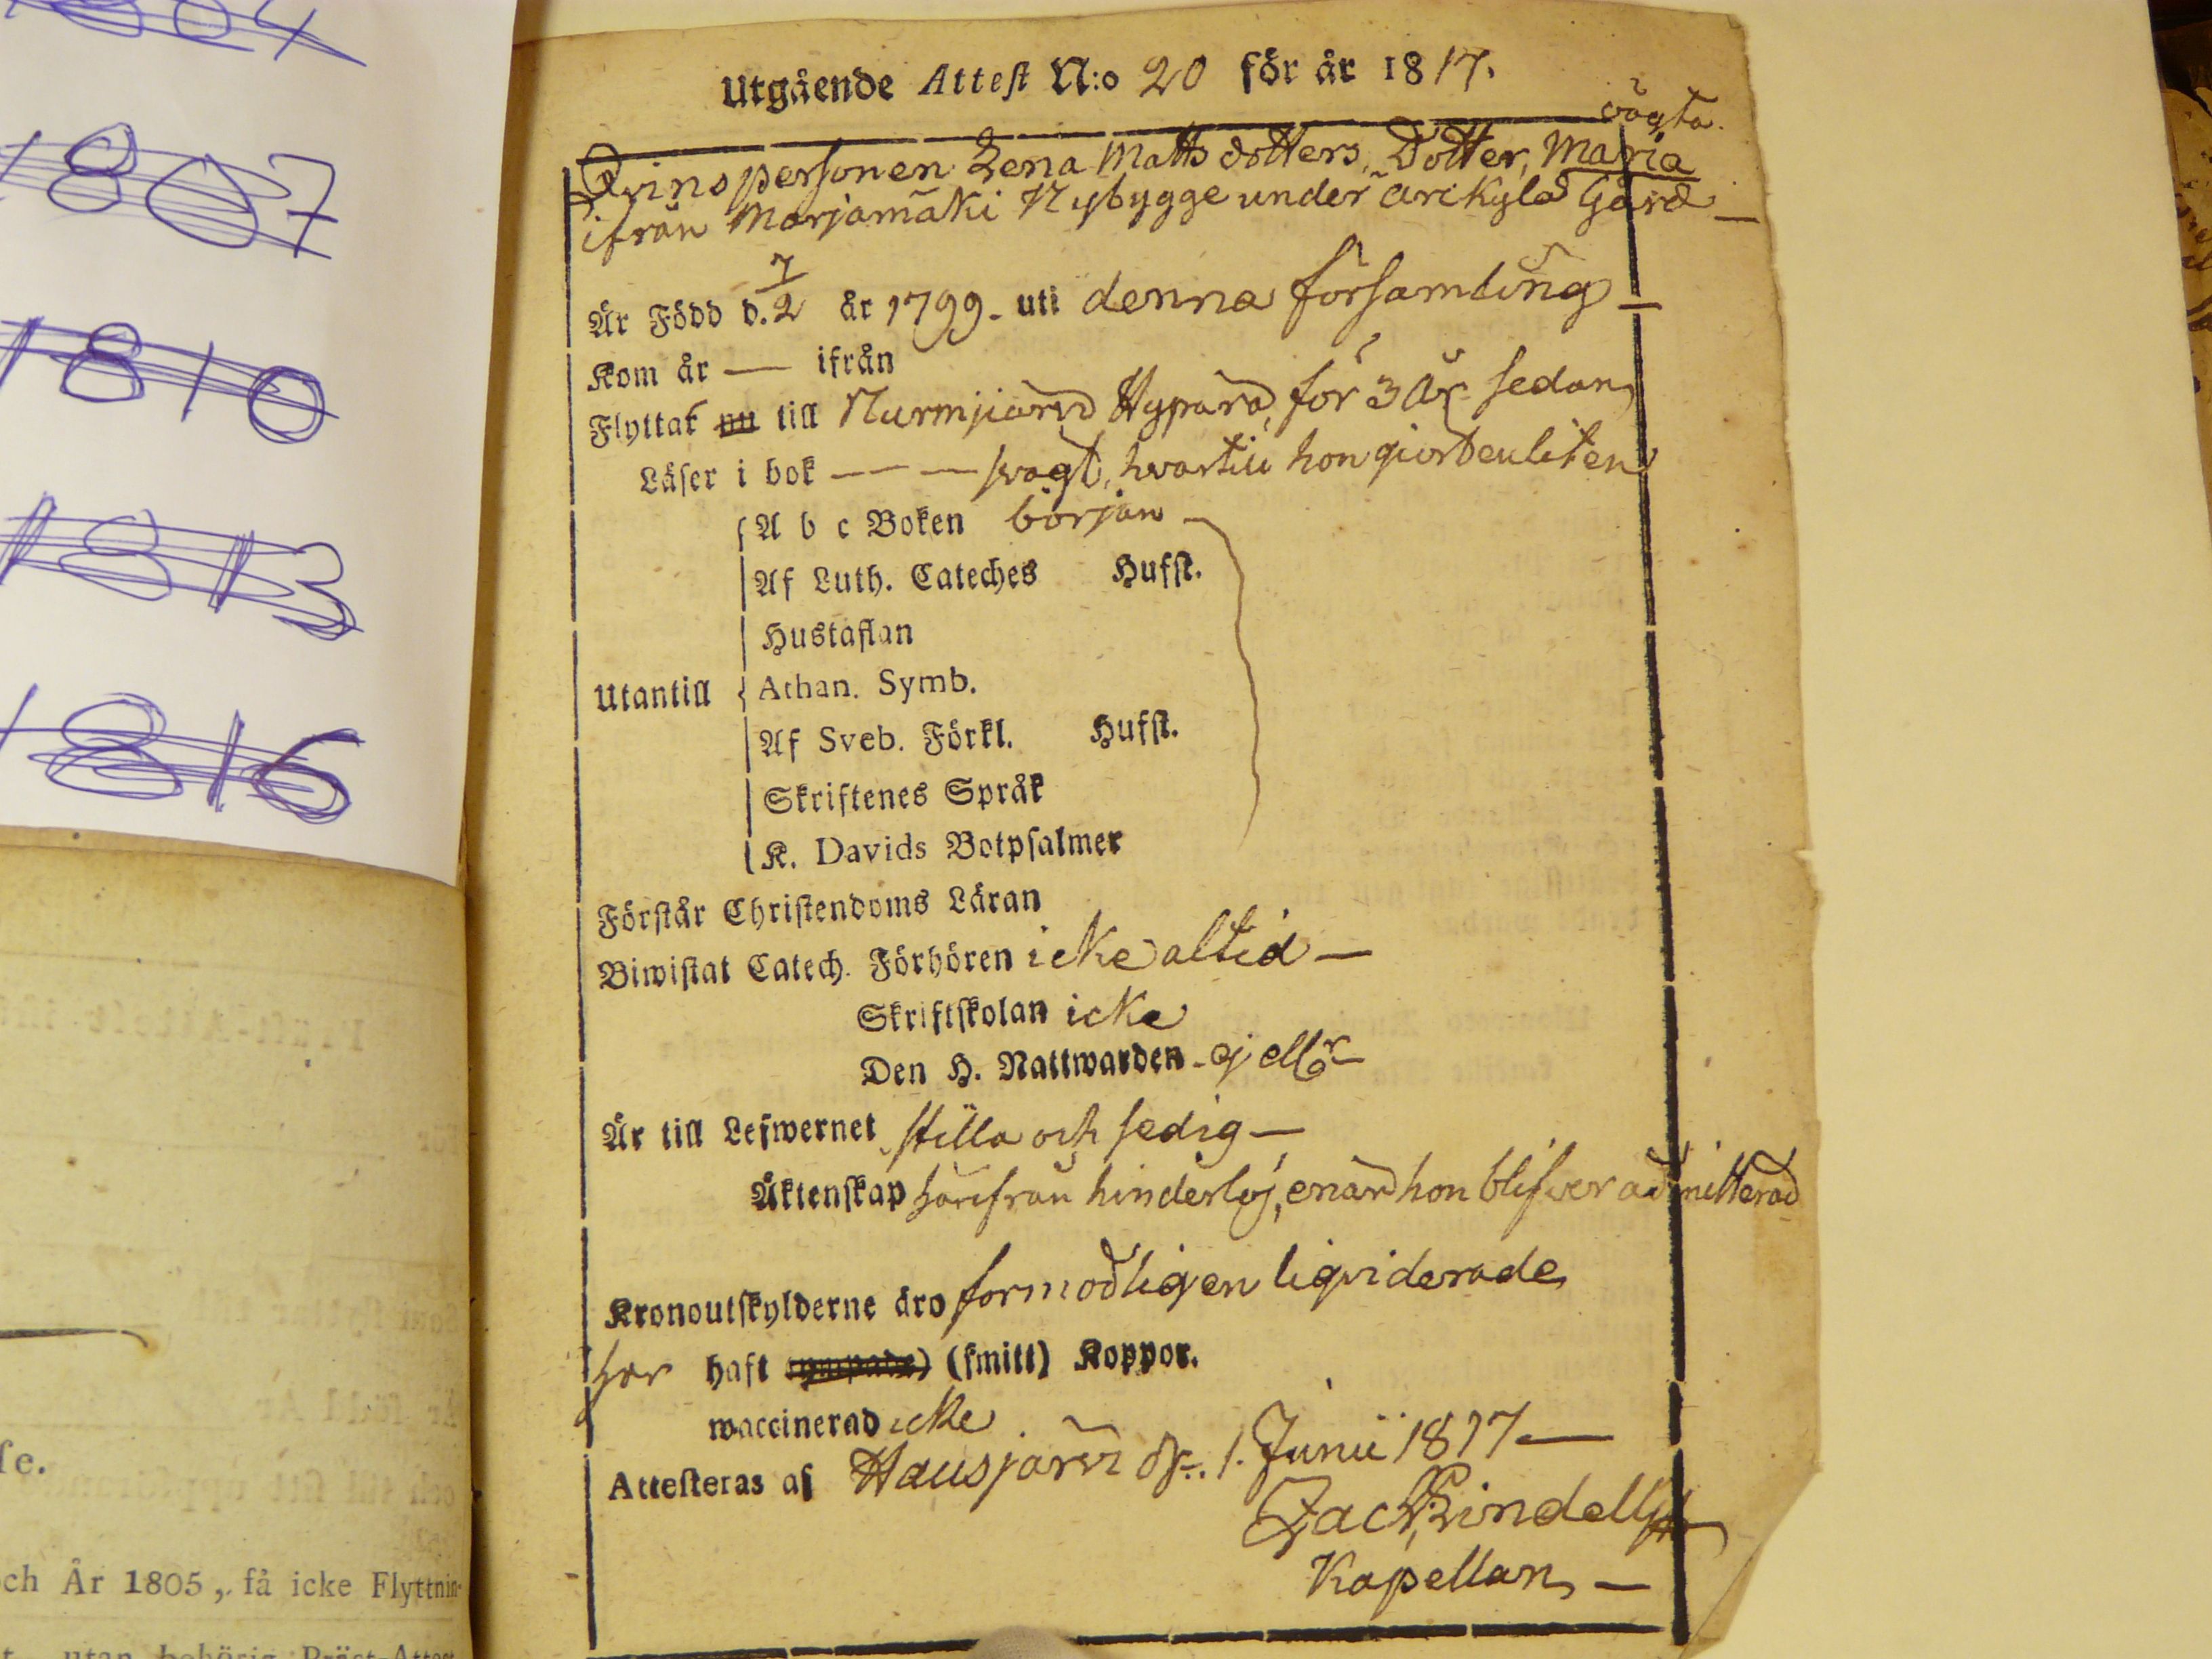 1807
1810
1813
1816
se.
och År 1805, få icke Flyttnin-
Utgående Attest N:o 20 för år 1817.
oägta.
Qvinspersonen Lena Mattsdotters Dotter, Maria
ifrån Marjamäki Nybygge under Arikylä Gård —
Är Född d. 7/2 år 1799 - uti denna församling —
Kom år — ifrån
Flyttat nu till Nurmijärvi för 3 År sedan
Läser i bok — — — svagt, hvartill hon giort en liten
A b c Boken början —
Af Luth. Cateches Hufst.
Hustaflan
Utantill Athan. Symb.
Af Sveb. Förkl. Hufst.
Skriftenes Språk
K. Davids Botpsalmer
Förstår Christendoms Läran
Biwistat Catech. Förhören icke altid —
Skriftskolan icke
Den H. Nattwarden - ej ell:r
Är till Lefwernet stilla och sedig —
Äktenskap härifrån hinderlös, enär hon blifver admitterad
Kronoutskylderne äro formodligen liqviderade
har haft (ympade) (smitt) Koppor.
waccinerad icke
Attesteras af Hausjärvi d. 1. Junii 1817 —
Zach. Lindell
Kapellan, —